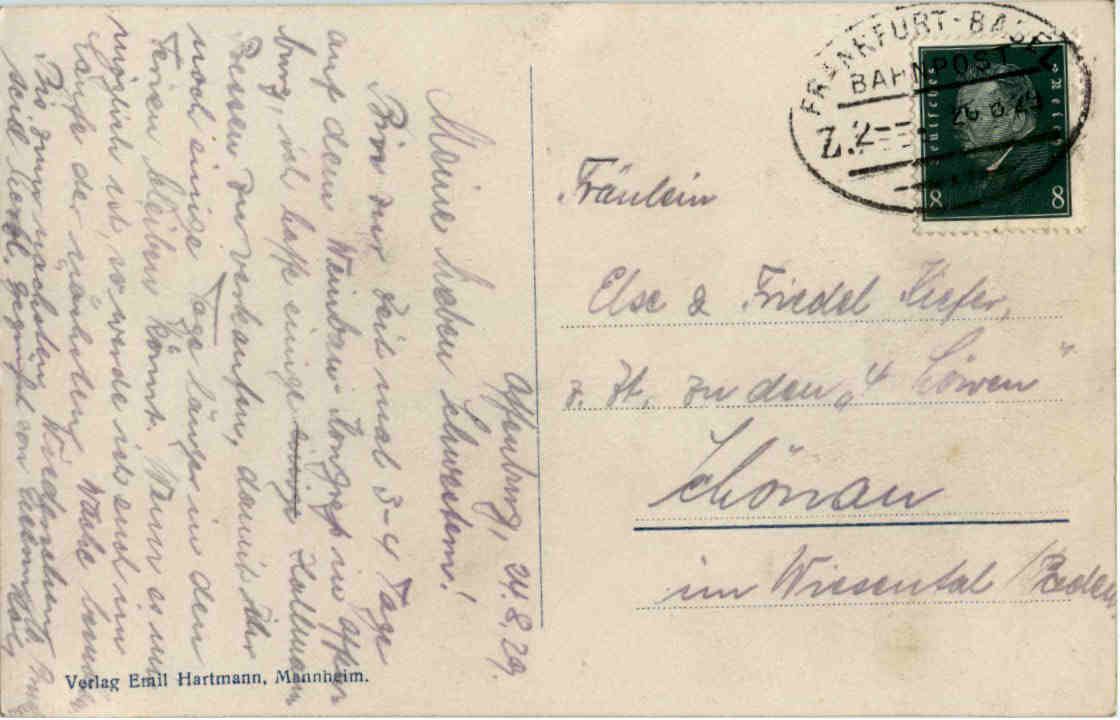 Offenburg, 24.8.29.
Meine lieben Schwestern!
Bin zur Zeit mal 3-4 Tage
auf dem Weinbau Kongreß in Offen
burg, ich hoffe einige
zu verkaufen, damit Ihr
noch einige Tage länger in den
Ferien bleiben könnt. Wenn es mir
möglich ist, so werde ich Euch im
Laufe der nächsten Woche
Bis zum nächsten Wiedersehen
seid herzl. gegrüßt von
Verlag Emil Hartmann, Mannheim.
FRANKFURT-BASEL
BAHNPOST
Z.2
26 8 29
Deutsches Reich
8 8
Fräulein
Else & Friedel Kiefer,
z. Zt. zu den „4 Löwen“
Schönau
im Wiesental /Baden